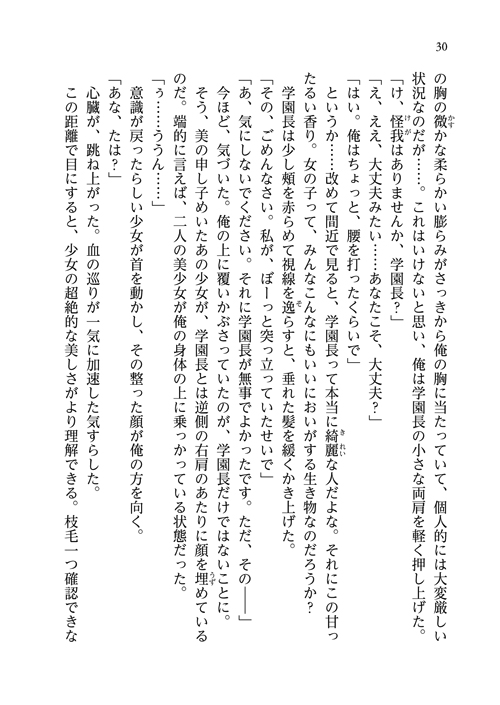 30
の胸の微かな柔らかい膨らみがさっきから俺の胸に当たっていて、個人的には大変厳しい
状況なのだが……。これはいけないと思い、俺は学園長の小さな両肩を軽く押し上げた。
「け、怪我はありませんか、学園長？」
「え、ええ、大丈夫みたい……あなたこそ、大丈夫？」
「はい。俺はちょっと、腰を打ったくらいで」
というか……改めて間近で見ると、学園長って本当に綺麗な人だよな。それにこの甘っ
たるい香り。女の子って、みんなこんなにもいいにおいがする生き物なのだろうか？
学園長は少し頬を赤らめて視線を逸らすと、垂れた髪を緩くかき上げた。
「その、ごめんなさい。私が、ぼーっと突っ立っていたせいで」
「あ、気にしないでください。それに学園長が無事でよかったです。ただ、その――」
今ほど、気づいた。俺の上に覆いかぶさっていたのが、学園長だけではないことに。
そう、美の申し子めいたあの少女が、学園長とは逆側の右肩のあたりに顔を埋めている
のだ。端的に言えば、二人の美少女が俺の身体の上に乗っかっている状態だった。
「ぅ……ううん……」
意識が戻ったらしい少女が首を動かし、その整った顔が俺の方を向く。
「あな、たは？」
心臓が、跳ね上がった。血の巡りが一気に加速した気すらした。
この距離で目にすると、少女の超絶的な美しさがより理解できる。枝毛一つ確認できな